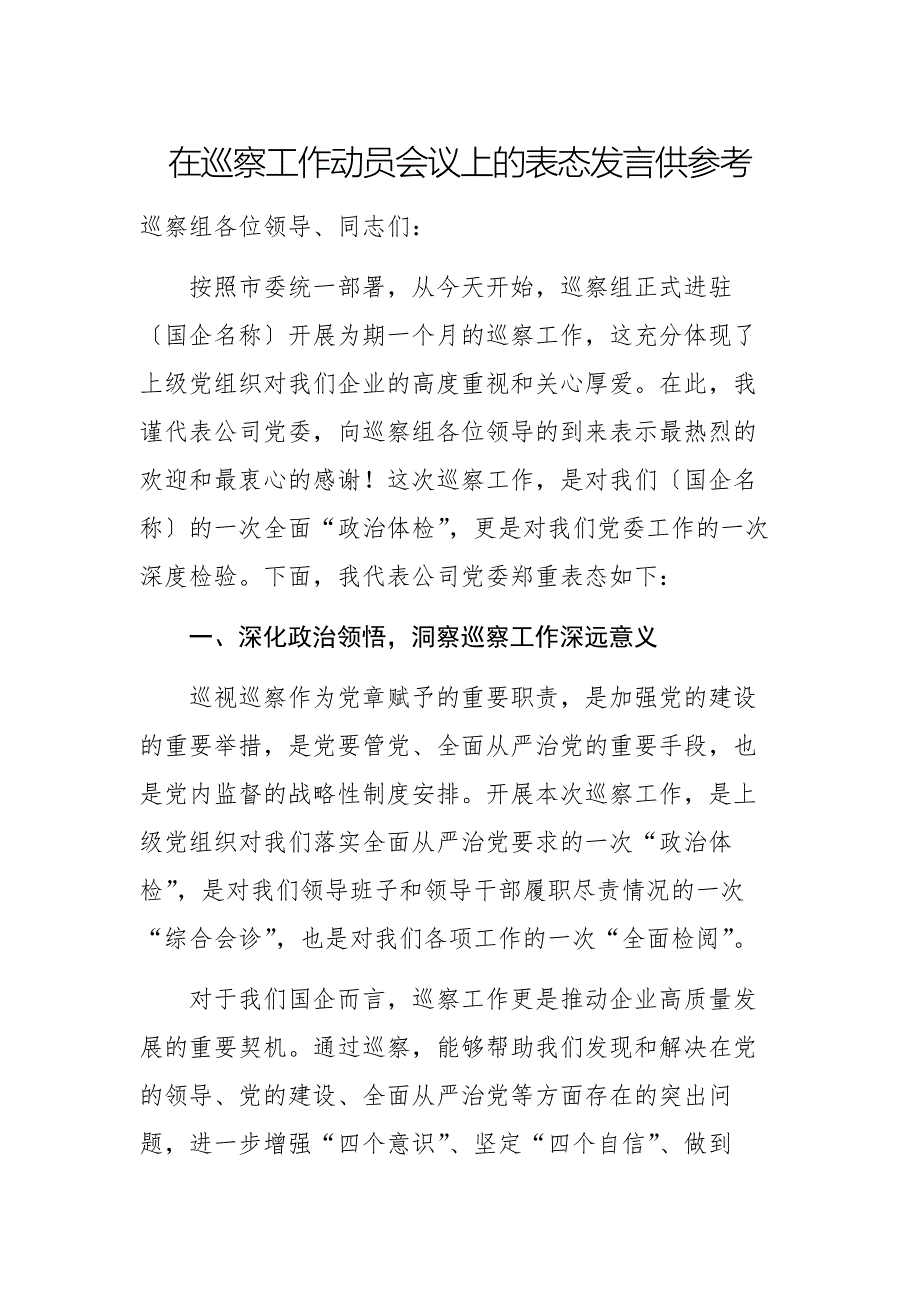 在巡察工作动员会议上的表态发言供参考
巡察组各位领导、同志们：
按照市委统一部署，从今天开始，巡察组正式进驻
〔国企名称〕开展为期一个月的巡察工作，这充分体现了
上级党组织对我们企业的高度重视和关心厚爱。在此，我
谨代表公司党委，向巡察组各位领导的到来表示最热烈的
欢迎和最衷心的感谢！这次巡察工作，是对我们〔国企名
称〕的一次全面“政治体检”，更是对我们党委工作的一次
深度检验。下面，我代表公司党委郑重表态如下：
一、深化政治领悟，洞察巡察工作深远意义
巡视巡察作为党章赋予的重要职责，是加强党的建设
的重要举措，是党要管党、全面从严治党的重要手段，也
是党内监督的战略性制度安排。开展本次巡察工作，是上
级党组织对我们落实全面从严治党要求的一次“政治体
检”，是对我们领导班子和领导干部履职尽责情况的一次
“综合会诊”，也是对我们各项工作的一次“全面检阅”。
对于我们国企而言，巡察工作更是推动企业高质量发
展的重要契机。通过巡察，能够帮助我们发现和解决在党
的领导、党的建设、全面从严治党等方面存在的突出问
题，进一步增强“四个意识”、坚定“四个自信”、做到